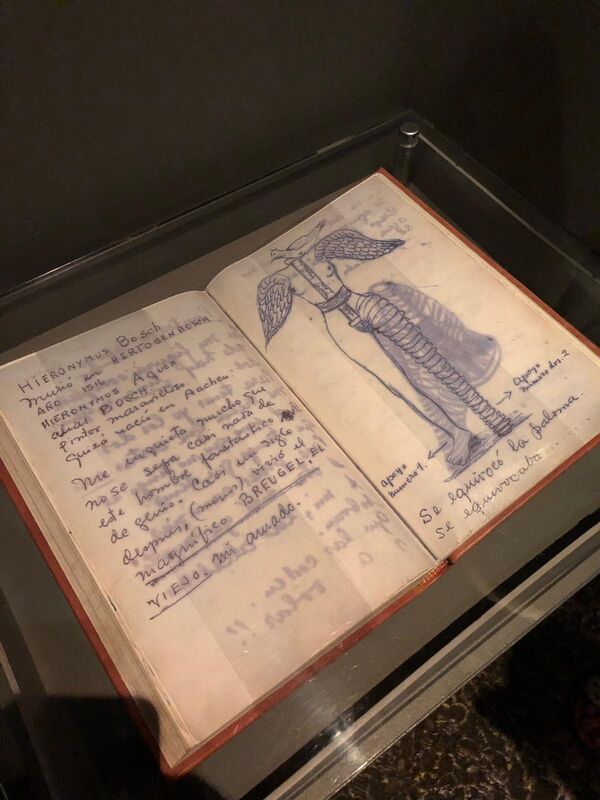 HIERONYMUS Bosch
Murio en HERTOGENBOSCH
AÑO 1516
HIERONYMUS AQUEN
alias BOSCH.
Pintor maravilloso.
quizá nació en Aachen.
Me inquieta mucho que
no se sepa casi nada de
este hombre fantastico
de genio. Casi un siglo
despues, (menos) vivió el
magnífico BREUGEL, EL
VIEJO, mi amado.
apoyo
numero 1.
apoyo
numero dos. 2
Se equivocó la paloma.
Se equivocaba...